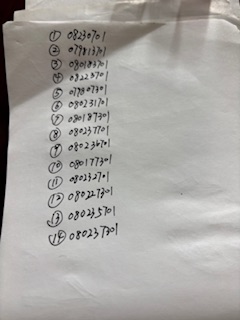 ① 08230701
② 079813701
③ 080183701
④ 08223701
⑤ 079807301
⑥ 080231701
⑦ 080187301
⑧ 080237701
⑨ 080236701
⑩ 080177301
⑪ 080232701
⑫ 080227301
⑬ 080235701
⑭ 080237301